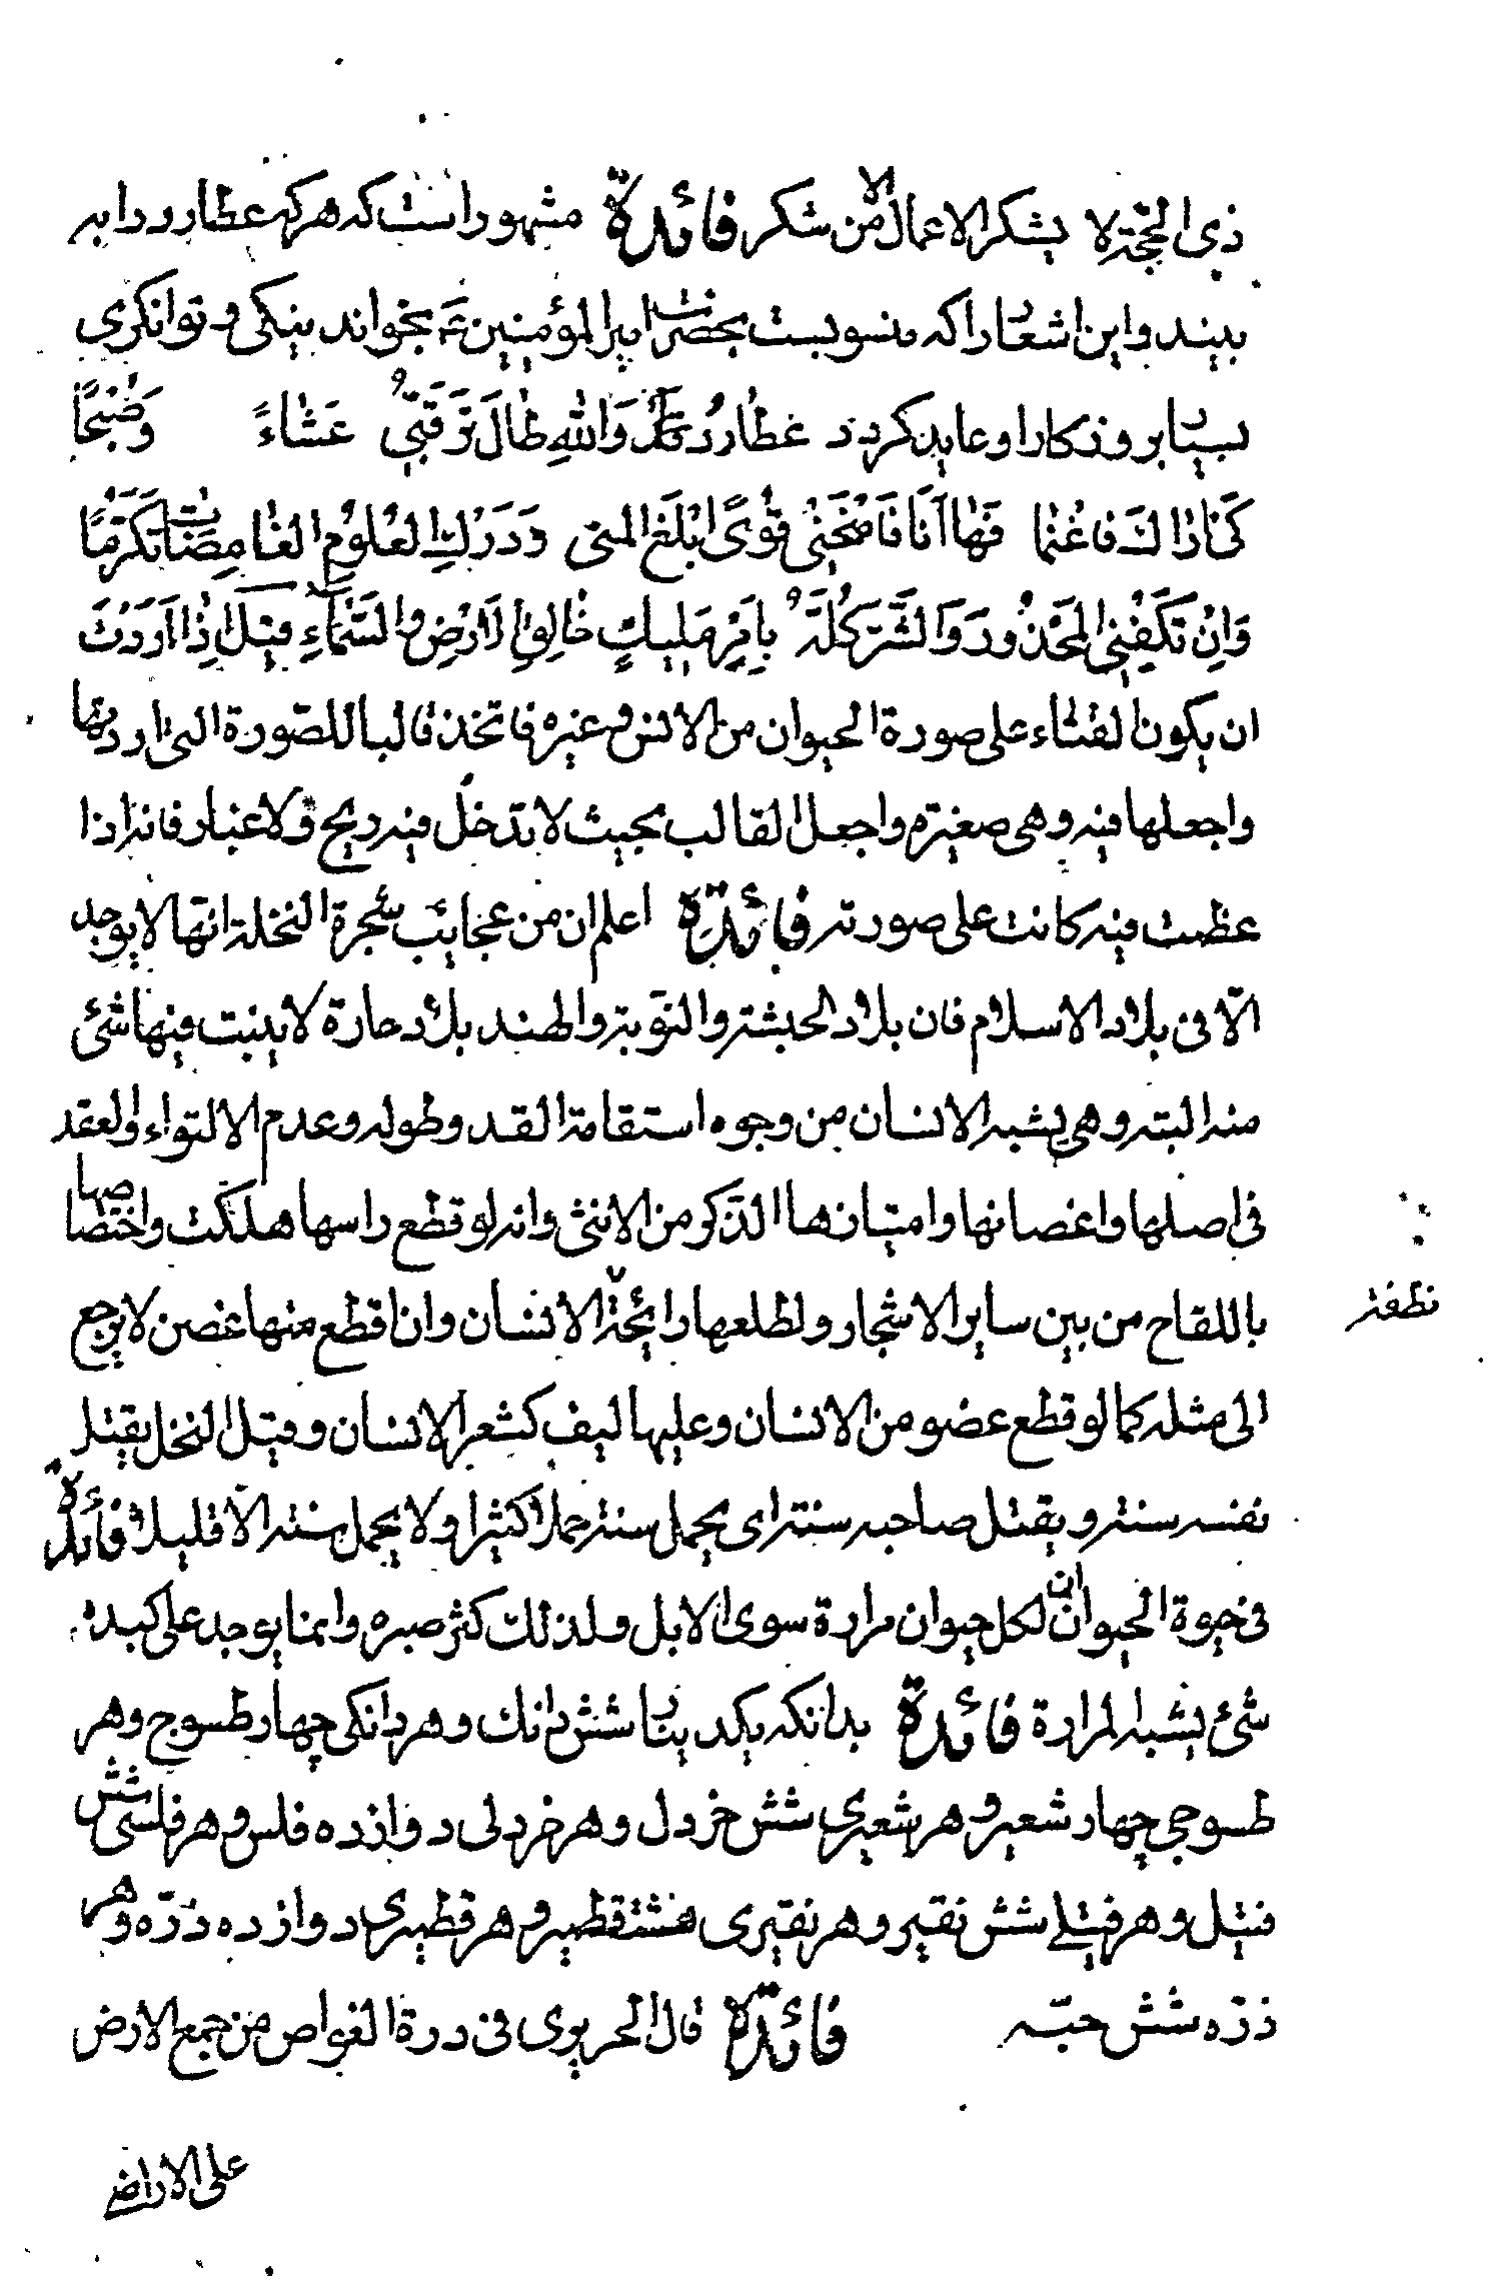 ذی الحجّة لا یشکر الاعمال الا من شکر فائدة مشهور است که هر که عطارد را به
بیند و این اشعار را که منسوبست بحضرت امیر المؤمنین ع بخواند بنیکی و توانکری
بسیار روزکار او عاید کردد عُطارِدُ وَاللهِ طالَ تَرَقّبی عَشاءً وَصُبْحًا
کَی اَراكَ فَاغْنَما فَها اَنَا فَامْنَحْنی قُوًی اَبْلُغِ المنی وَدَرْكِ العُلُومِ الغامِضاتِ تَکَرُّمًا
وَاِنْ تَکْفِنی المَحْذُورَ وَالشَّرَّ کُلَّهُ بِاَمْرِ مَلیكٍ خالِقِ الاَرْضِ وَالسَّماءِ قیل اِذا اَرَدْتَ
ان یکون القثاء علی صورة الحیوان من الانس و غیره فاتخذ قالبا للصّورة التی اردتها
واجعلها فیه وهی صغیرة واجعل القالب بحیث لا یدخل فیه ریح ولا غبار فانه اذا
عظمت فیه کانت علی صورته فائدة اعلم ان من عجایب شجرة النخلة انّها لا یوجد
الّا فی بلاد الاسلام فان بلاد الحبشة والنّوبة والهند بلاد حارة لا ینبت فیها شئ
منه البته وهی یشبه الانسان من وجوه استقامة القد وطوله وعدم الالتواء والعقد
فی اصلها واغصانها وامتیازها الذکر من الانثی وانه لو قطع راسها هلکت واختصاصها
باللقاح من بین سایر الاشجار ولطلعها رائحة الانسان وان قطع منها غصن لا یرجع
نطفة
الی مثله کما لو قطع عضو من الانسان وعلیها لیف کشعر الانسان وقیل النخل یقتل
نفسه سنة ویقتل صاحبه سنة ای یحمل سنة حملا کثیرا ولا یحمل سنة الا قلیلا فائدة
فی حیوة الحیوان ان لکل حیوان مرارة سوی الابل ولذلك کثر صبره وانما یوجد علی کبده
شئ یشبه المرارة فائدة بدانکه یکدینار شش دانك وهر دانکی چهار طسوج وهر
طسوجی چهار شعیر و هر شعیری شش خردل وهر خردلی دوازده فلس و هر فلسی شش
فتیل وهر فتیلی شش نقیر وهر نقیری هشت قطمیر و هر قطمیری دوازده ذرّه وهر
ذرّه شش حبّه فائدة قال الحریری فی درة الغواص من جمع الارض
علی الاراضی